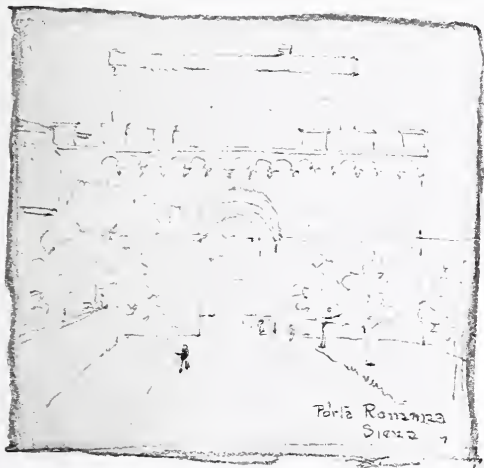 Porta Romana
Siena